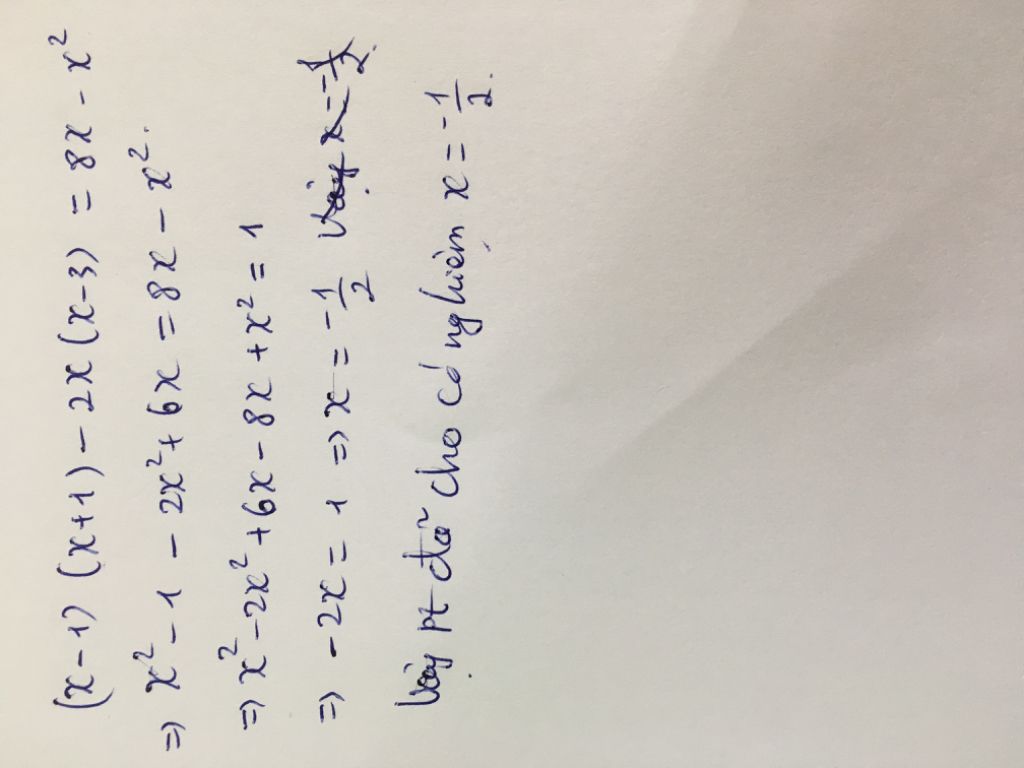 (x-1)(x+1) - 2x(x-3) = 8x - x²
=> x² - 1 - 2x² + 6x = 8x - x².
=> x² - 2x² + 6x - 8x + x² = 1
=> -2x = 1 => x = -1/2 Vậy x = -1/2.
Vậy pt đã cho có nghiệm x = -1/2.